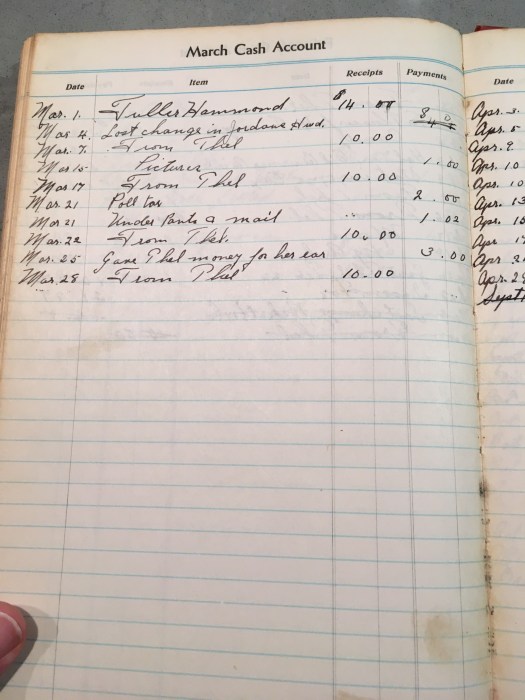 March Cash Account
Date Item Receipts Payments Date
Mar. 1. Fuller Hammond $14.00 Apr. 3.
Mar 4. Lost change in Jordans Hwd. 8
Mar. 7. From Thel 10.00 Apr. 9
Mar 15 Pictures 1.00 Apr. 10
Mar 17 From Thel 10.00 Apr. 10
Mar. 21 Poll tax 2.00 Apr. 13
Mar 21 Under Pants & mail 1.02 Apr.
Mar. 22 From Thel. 10.00 Apr 17
Mar. 25 Gave Thel money for her ear 3.00 Apr
Mar. 28 From Thel 10.00 Apr. 28
Sept